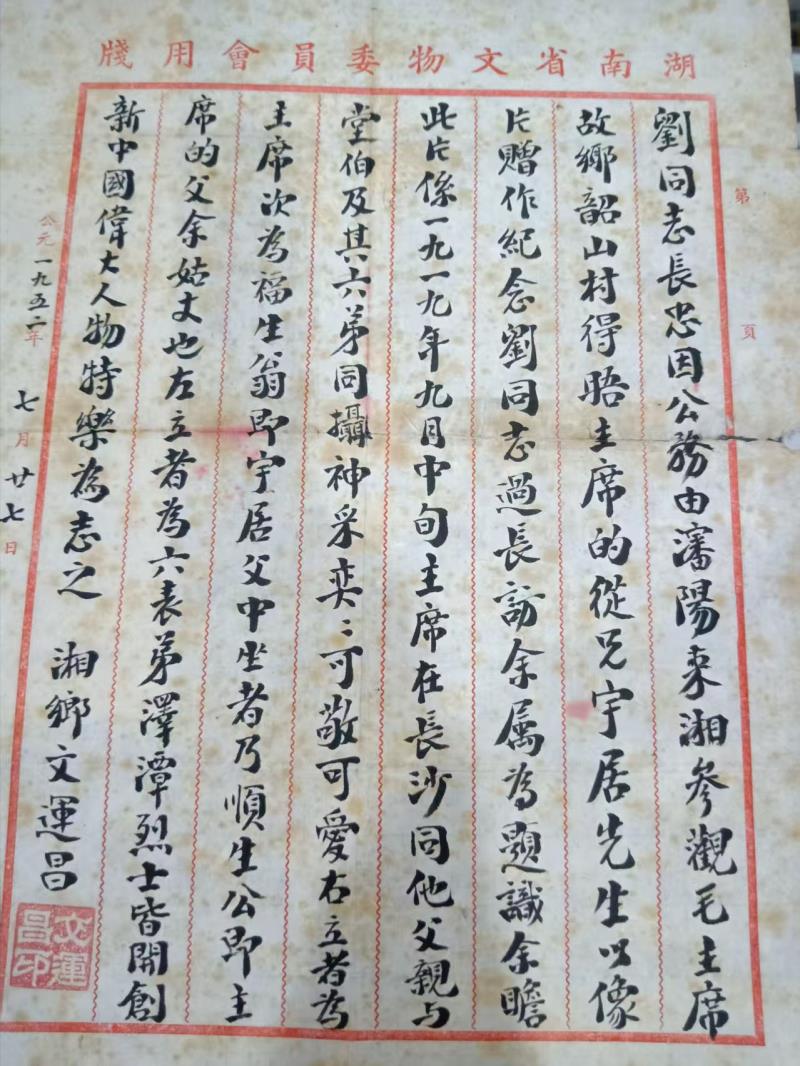 湖南省文物委員會用牋
第 頁
劉同志長忠因公務由瀋陽来湘參觀毛主席
故鄉韶山村得晤主席的從兄宇居先生以像
片贈作紀念劉同志過長訪余属為題識余瞻
此片係一九一九年九月中旬主席在長沙同他父親与
堂伯及其六弟同攝神采奕〻可敬可愛右立者為
主席次為福生翁即宇居父中坐者乃順生公即主
席的父余姑丈也左立者為六表弟澤潭烈士皆開創
新中國偉大人物特樂為志之 湘鄉文運昌
公元一九五二年七月廿七日
文運昌印